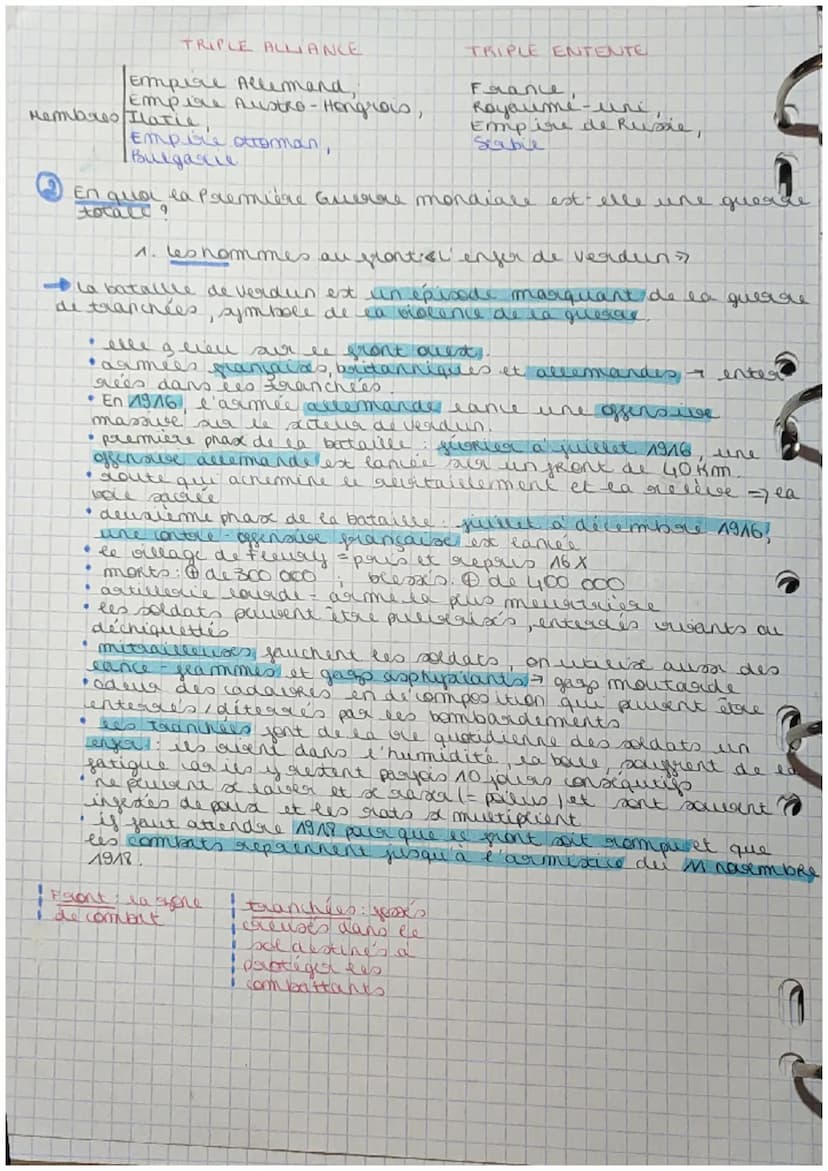 TRIPLE ALLIANCE
TRIPLE ENTENTE
Membres
Empire Allemand,
Empire Austro-Hongrois,
Italie,
Empire ottoman,
Bulgarie
France,
Royaume-uni,
Empire de Russie,
Serbie
② En quoi la Première Guerre mondiale est-elle une guerre
totale ?
1. les hommes au front : l'enfer de verdun =>
→ La bataille de verdun est un épisode marquant de la guerre
de tranchées, symbole de la violence de la guerre.
• elle a lieu sur le front ouest.
• armées françaises, britanniques et allemandes → enter
rées dans les tranchées.
• En 1916, l'armée allemande lance une offensive
massive sur le secteur de verdun.
• première phase de la bataille : février à juillet 1916, une
offensive allemande est lancée sur un front de 40 Km.
• route qui achemine le ravitaillement et la relève => la
voie sacrée
• deuxième phase de la bataille : juillet à décembre 1916,
une contre-offensive française est lancée
• le village de Fleury = pris et repris 16 X
• morts : ⊕ de 300 000 ; blessés : ⊕ de 400 000
• artillerie lourde = arme la plus meurtrière
• les soldats peuvent être pulvérisés, enterrés vivants ou
déchiquettés
• mitrailleuses fauchent les soldats, on utilise aussi des
lance-flammes et gazs asphyxiants → gazs moutarde
• odeur des cadavres en décomposition qui peuvent être
enterrés/déterrés par les bombardements
• les tranchées font de la vie quotidienne des soldats un
enfer : ils vivent dans l'humidité, la boue, souffrent de la
fatigue car ils y restent parfois 10 jours consécutifs
• ne peuvent se laver et se raser (= poilus) et sont souvent
infestés de poux et les rats se multiplient
• il faut attendre 1918 pour que le front soit rompu et que
les combats reprennent jusqu'à l'armistice du 11 novembre
1918.
Front : la zone
de combat
tranchées : fossés
creusés dans le
sol destinés à
protéger les
combattants